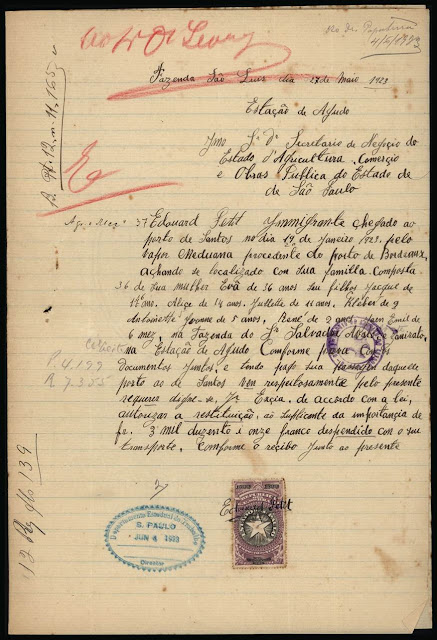 ao Sr Dr
4/6/1923
Fazenda São Luiz dia 27 de Maio 1923
Estação de Assudo
Ymo Sr Dr Secretario de Negoçio do
Estado d'Agricultura, Comercio
e Obras Publica do Estado de
de São Paulo
37 Edouard Petit Ymmigrante chegado ao
porto de Santos no dia 19 de Janeiro 1923 pelo
vapor Meduana procedente do porto de Bordeaux,
achando se localizado com sua familla Composta
36 de Sua mulher Eva de 36 anos seu filhos Jacque de
17 ano. Alice de 14 ans. Juillette de 11 anos. Kléber de 9
Antoinette Yvonne de 5 anos, René de 2 ans, Jean Emil de
6 mez, na Fazenda do Sr Salvador
na Estação de Assudo Conforme prova Com os
Documentos Juntos, e tendo pago sua passagem daquelle
porto ao de Santos Vem respeitosamente pelo presente
requerer digne-se, Va Excia. de accordo com a lei,
autorizar a restituição, ao Supplicante da importancia de
fs. 3 mil duzento e onze franco despendido com o seu
transporte, Comforme o recibo Junto ao presente
P. 4.199
R 7.355
139
Edouard Petit
Departamento Estadual do Trabalho
S. PAULO
JUN 4 1923
Director